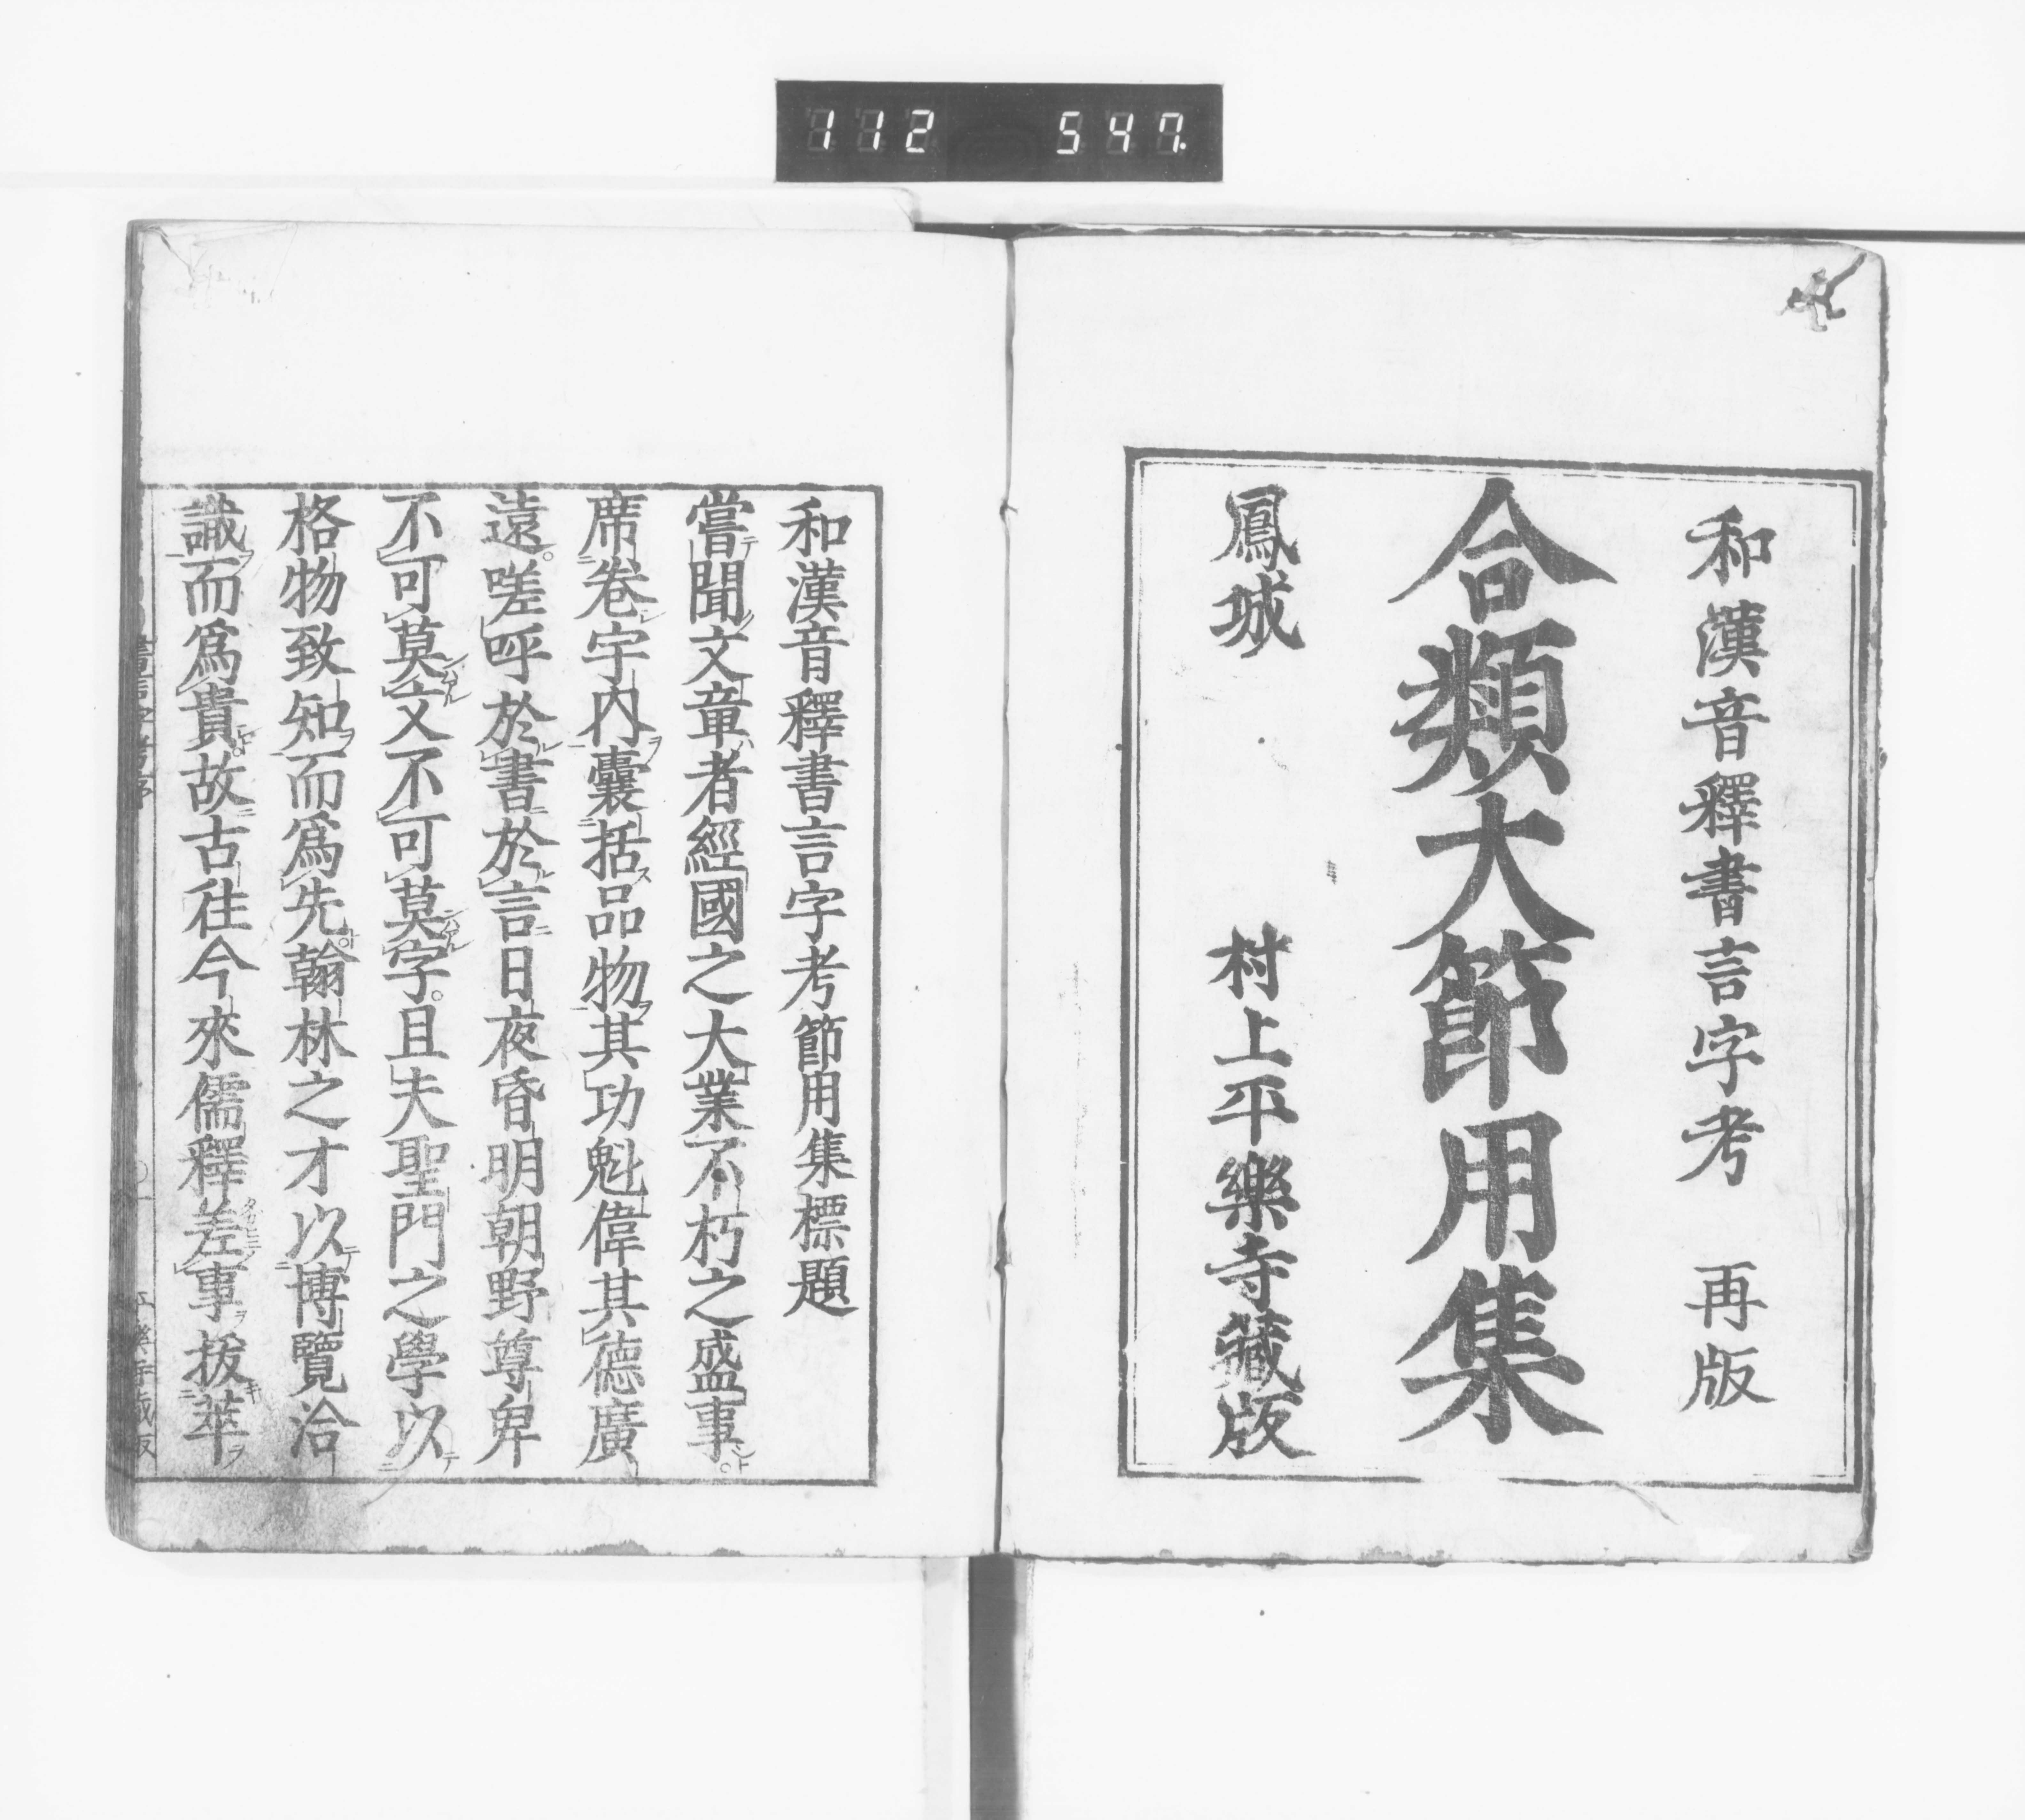 112 547.
和漢音釋書言字考 再版
合類大節用集
鳳城 村上平樂寺藏版
和漢音釋書言字考節用集標題
嘗聞文章者經國之大業不朽之盛事
席卷宇内囊括品物其功魁偉其德廣
遠嗟呼於書於言日夜昏明朝野尊卑
不可莫文不可莫字且夫聖門之學以
格物致知而爲先翰林之才以博覽洽
識而爲貴故古往今來儒釋差事拔萃